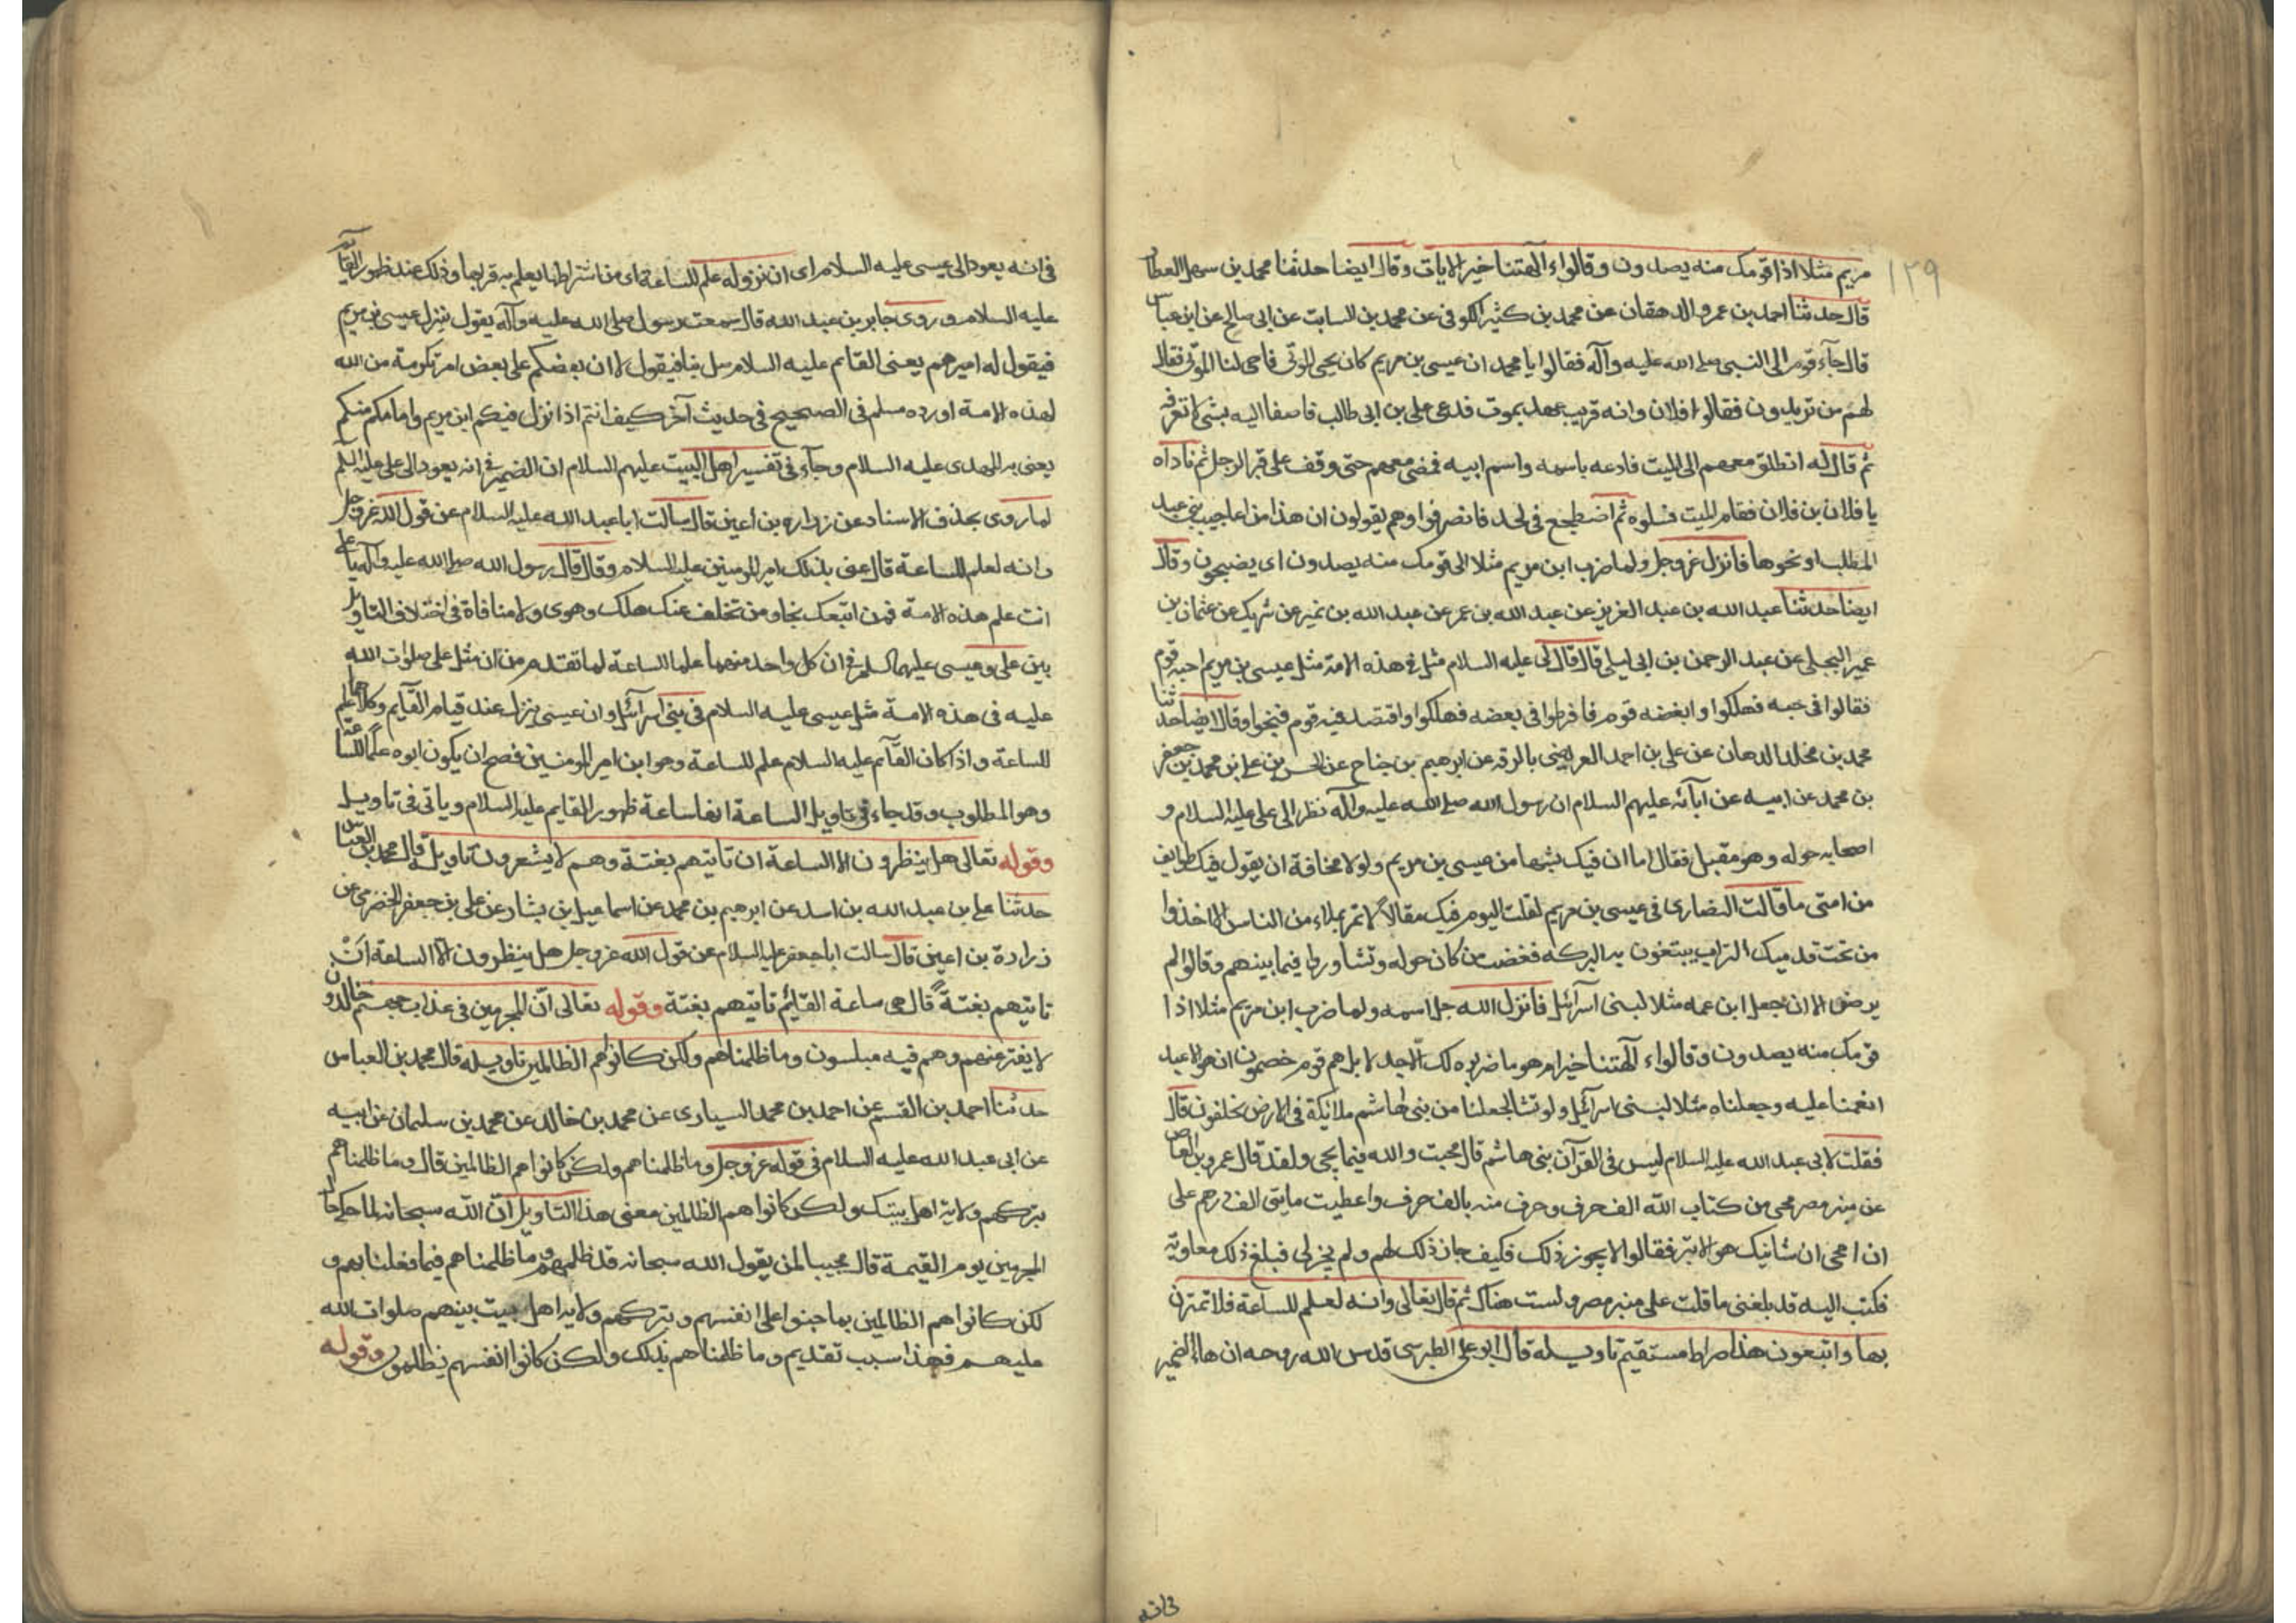 ١٢٩
مريم مثلا اذا قومك منه يصدون وقالوا ءآلهتنا خير الايات وقال ايضا حدثنا محمد بن سهل العطار
قال حدثنا احمد بن عمرو الدهقان عن محمد بن كثير الكوفى عن محمد بن السابت عن ابى صالح عن ابن عباس
قال جآء قوم الى النبى صلى الله عليه وآله فقالوا يا محمد ان عيسى بن مريم كان يحيى الموتى فاحى لنا الموتى فقال
لهم من تريدون فقالوا فلان وانه قريب عهد بموت فدعى على بن ابى طالب فاصفا اليه بشئ لا تعرفه
ثم قال له انطلق معهم الى الميت فادعه باسمه واسم ابيه فمضى معهم حتى وقف على قبر الرجل ثم ناداه
يا فلان بن فلان فقام الميت فسلوه ثم اضطجع فى لحد فانصرفوا وهم يقولون ان هذا من اعاجيب بنى عبد
المطلب او نحوها فانزل عز وجل ولما ضرب ابن مريم مثلا الى قومك منه يصدون اى يضجون وقال
ايضا حدثنا عبد الله بن عبد العزيز عن عبد الله بن عمر عن عبد الله بن نمير عن شريك عن عثمان بن
عمير البجلى عن عبد الرحمن بن ابى ليلى قال قال لى عليه السلام مثلى فى هذه الامة مثل عيسى بن مريم احبه قوم
فقالوا فى حبه فهلكوا وابغضه قوم فافرطوا فى بعضه فهلكوا واقتصد فيه قوم فنجوا وقال ايضا حدثنا
محمد بن مخلد الدهان عن على بن احمد العريضى بالرقه عن ابرهيم بن جناح عن الحسن بن على بن محمد بن جعفر
بن محمد عن ابيه عن آبآئه عليهم السلام ان رسول الله صلى الله عليه وآله نظر الى على عليه السلام و
اصحابه حوله وهو مقبل فقال اما ان فيك شبها من عيسى بن مريم ولولا مخافة ان يقول فيك طوايف
من امتى ما قالت النصارى فى عيسى بن مريم لقلت اليوم فيك مقالاً لا تمر بملاء من الناس الا اخذوا
من تحت قدميك التراب يبتغون به البركه فغضب من كان حوله وتشاوروا فيما بينهم وقالوا لم
يرض الا ان جعل ابن عمه مثلا لبنى اسرآئيل فانزل الله جل اسمه ولما ضرب ابن مريم مثلا اذا
قومك منه يصدون وقالوا ءآلهتنا خير ام هو ما ضربوه لك الا جدلا بل هم قوم خصمون ان هو الا عبد
انعمنا عليه وجعلناه مثلا لبنى اسرآئيل ولو نشا لجعلنا من بنى هاشم ملائكة فى الارض يخلفون قال
فقلت لابى عبد الله عليه السلام ليس فى القرآن بنى هاشم قال محيت والله فيما يحى ولقد قال عمرو بن العاص
عن منبر مصر محى من كتاب الله الف حرف وحرف منه بالف حرف واعطيت مايتى الف درهم على
ان امحى ان شانيك هو الابتر فقالوا لا يجوز ذلك فكيف جاز ذلك لهم ولم يجز لى فبلغ ذلك معاوية
فكتب اليه قد بلغنى ما قلت على منبر مصر ولست هناك ثم قال تعالى وانه لعلم للساعة فلا تمترن
بها واتبعون هذا صراط مستقيم تاويله قال ابو على الطبرسى قدس الله روحه ان هاء الضمير
فى انه
فى انه يعود الى عيسى عليه السلام اى ان نزوله علم للساعة اى من اشراطها يعلم به قربها وذلك عند ظهور القآئم
عليه السلام وروى جابر بن عبد الله قال سمعت رسول صلى الله عليه وآله يقول ينزل عيسى بن مريم
فيقول له اميرهم يعنى القايم عليه السلام صل بنا فيقول لا ان بعضكم على بعض امر تكرمة من الله
لهذه الامة اورده مسلم فى الصحيح فى حديث آخر كيف انتم اذا نزل فيكم ابن مريم وامامكم منكم
يعنى به المهدى عليه السلام وجآء فى تفسير اهل البيت عليهم السلام ان الضمير فى انه يعود الى على عليه السلم
لما روى بحذف الاسناد عن زراره بن أعين قال سالت ابا عبد الله عليه السلام عن قول الله عز وجل
وانه لعلم للساعة قال عنى بذلك امير المومنين عليه السلام وقال قال رسول الله صلى الله عليه وآله يا على
انت علم هذه الامة فمن اتبعك نجا ومن تخلف عنك هلك وهوى ولا منافاة فى اختلاف التاويل
بين على وعيسى عليهما السلم فى ان كل واحد منهما علما للساعة لما تقدم من ان مثل على صلوات الله
عليه فى هذه الامة مثل عيسى عليه السلام فى بنى اسرآئيل وان عيسى ينزل عند قيام القآيم وكلاهما علم
للساعة واذا كان القآئم عليه السلام علم للساعة وهو ابن امير المومنين فصح ان يكون ابوه علمًا للساعة
وهو المطلوب وقد جاء فى تاويل الساعة انها ساعة ظهور القايم عليه السلام وياتى فى تاويل
وقوله تعالى هل ينظرون الا الساعة ان تاتيهم بغتة وهم لا يشعرون تاويله قال محمد بن العباس
حدثنا على بن عبد الله بن اسد عن ابرهيم بن محمد عن اسماعيل بن بشار عن على بن جعفر الحضرمى عن
زرارة بن اعين قال سالت ابا جعفر عليه السلام عن قول الله عز وجل هل ينظرون الا الساعة ان
تاتيهم بغتةً قال هى ساعة القآئم تاتيهم بغتة وقوله تعالى انّ المجرمين فى عذاب جهنم خالدون
لا يفتر عنهم وهم فيه مبلسون وما ظلمناهم ولكن كانوا هم الظالمين تاويله قال محمد بن العباس
حدثنا احمد بن القسم عن احمد بن محمد السيارى عن محمد بن خالد عن محمد بن سليمان عن ابيه
عن ابى عبد الله عليه السلام فى قوله عز وجل وما ظلمناهم ولكن كانوا هم الظالمين قال وما ظلمناهم
بتركهم ولاية اهل بيتك ولكن كانوا هم الظالمين معنى هذا التاويل ان الله سبحانه لما حكى حال
المجرمين يوم القيمة قال مجيبا لمن يقول الله سبحانه قد ظلمهم وما ظلمناهم فيما فعلنا بهم و
لكن كانوا هم الظالمين بما جنوا على انفسهم وبتركهم ولايه اهل بيت بينهم صلوات الله
عليهم فهذا سبب تقديم وما ظلمناهم بذلك ولكن كانوا انفسهم يظلمون وقوله